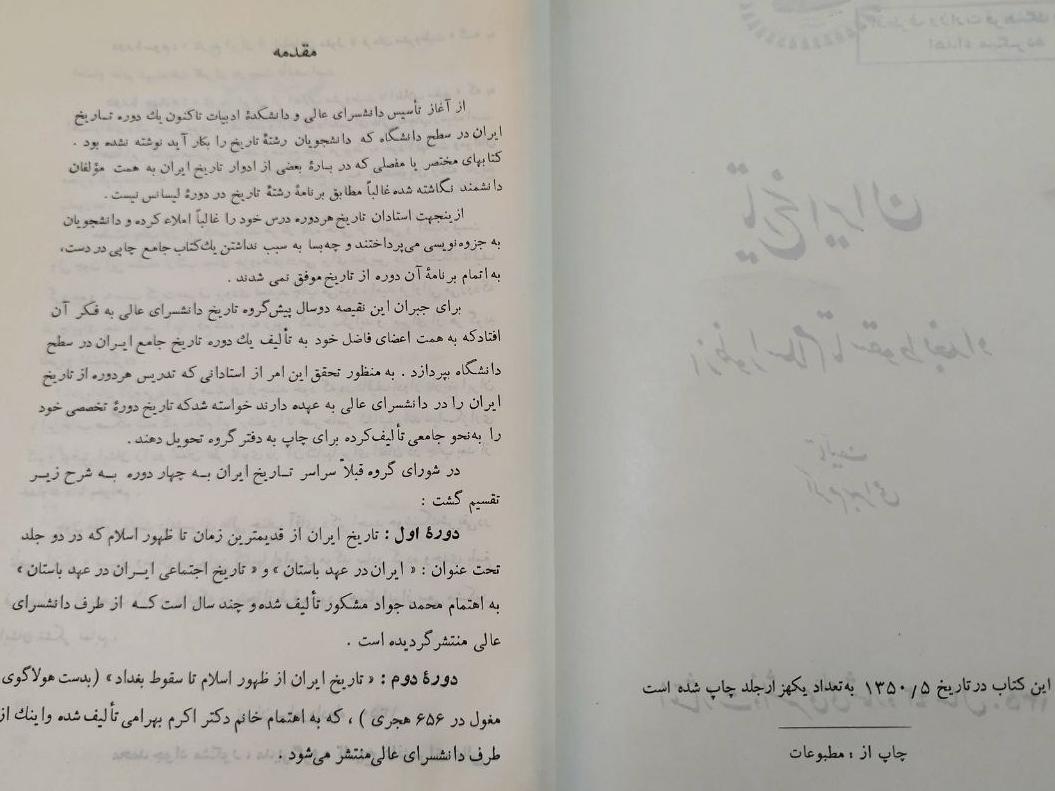 این کتاب در تاریخ ۱۳۵۰/۵ به تعداد یکهزار جلد چاپ شده است
چاپ از : مطبوعات
مقدمه
از آغاز تأسیس دانشسرای عالی و دانشکدهٔ ادبیات تاکنون یك دوره تـاریخ
ایران در سطح دانشگاه که دانشجویان رشتهٔ تاریخ را بکار آید نوشته نشده بود .
کتابهای مختصر یا مفصلی که در بارهٔ بعضی از ادوار تاریخ ایران به همت مؤلفان
دانشمند نگاشته شده غالباً مطابق برنامهٔ رشتهٔ تاریخ در دورهٔ لیسانس نیست .
ازینجهت استادان تاریخ هر دوره درس خود را غالباً املاء کرده و دانشجویان
به جزوه نویسی می‌پرداختند و چه‌بسا به سبب نداشتن یك کتاب جامع چاپی در دست،
به اتمام برنامهٔ آن دوره از تاریخ موفق نمی شدند .
برای جبران این نقیصه دوسال پیش گروه تاریخ دانشسرای عالی به فکر آن
افتاد که به همت اعضای فاضل خود به تألیف یك دوره تاریخ جامع ایـران در سطح
دانشگاه بپردازد . به منظور تحقق این امر از استادانی که تدریس هر دوره از تاریخ
ایران را در دانشسرای عالی به عهده دارند خواسته شد که تاریخ دورهٔ تخصصی خود
را به‌نحو جامعی تألیف کرده برای چاپ به دفتر گروه تحویل دهند .
در شورای گروه قبلاً سراسر تـاریخ ایران بـه چهار دوره بـه شرح زیـر
تقسیم گشت :
دورهٔ اول : تاریخ ایران از قدیمترین زمان تا ظهور اسلام که در دو جلد
تحت عنوان : « ایران در عهد باستان » و « تاریخ اجتماعی ایـران در عهد باستان »
به اهتمام محمد جواد مشکور تألیف شده و چند سال است کـه از طرف دانشسرای
عالی منتشر گردیده است .
دورهٔ دوم : « تاریخ ایران از ظهور اسلام تا سقوط بغداد » (بدست هولاگوی
مغول در ۶۵۶ هجری ) ، که به اهتمام خانم دکتر اکرم بهرامی تألیف شده واینك از
طرف دانشسرای عالی منتشر می‌شود .